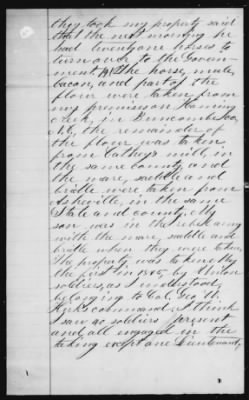 they took my property said
that the next morning he
had twenty one horses to
turn over to the Govern-
ment. The horse, mule,
bacon, and part of the
flour were taken from
my premises on Hominy
creek, in Buncombe Co,
N.C, the remainder of
the flour was taken
from Catheys mill, in
the same county and
the mare, saddle and
bridle were taken from
Asheville, in the same
State and county. My
son was in the rebel army
with the mare, saddle and
bridle when they were taken,
The property was taken by
the first in 1865, by Union
soldiers, as I understood,
belonging to Col, Geo W.
Kirks command. I think
I saw 90 soldiers present
and all engaged in the
taking except one Lieutenant,